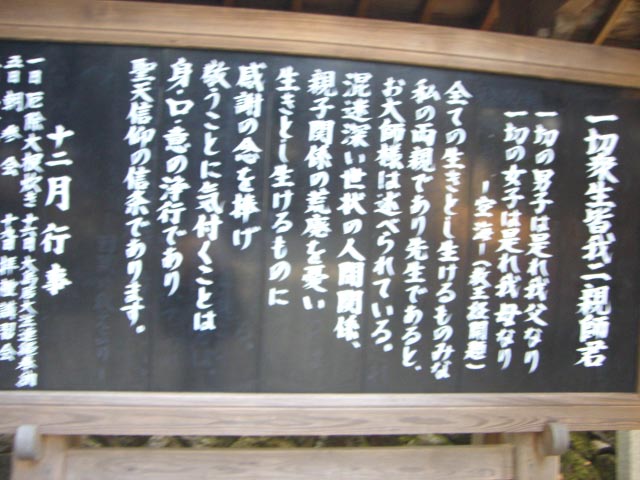 一切衆生皆我二親師君
一切の男子は是れ我父なり
一切の女子は是れ我母なり
－空海－（教王経開題）
全ての生きとし生けるものみな
私の両親であり先生であると、
お大師様は述べられている。
混迷深い世状の人間関係、
親子関係の荒廃を憂い
生きとし生けるものに
感謝の念を捧げ
敬うことに気付くことは
身・口・意の浄行であり
聖天信仰の信条であります。
十二月行事
一日
五日 朝参会